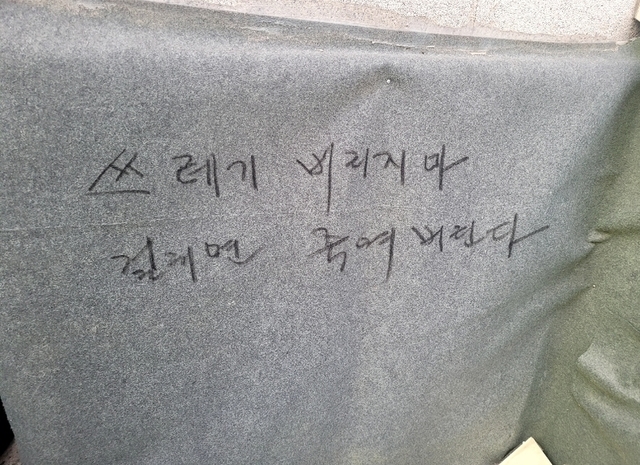 쓰레기 버리지마
걸레면 죽여버린다